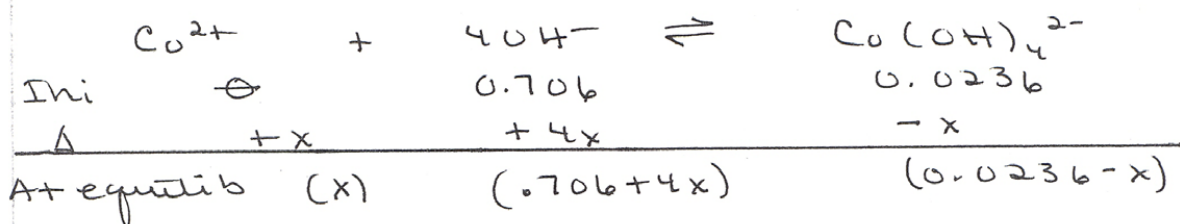 Co²⁺ + 4OH⁻ ⇌ Co(OH)₄²⁻
Ini 0 0.706 0.0236
Δ +x +4x -x
At equilib (x) (.706+4x) (0.0236-x)